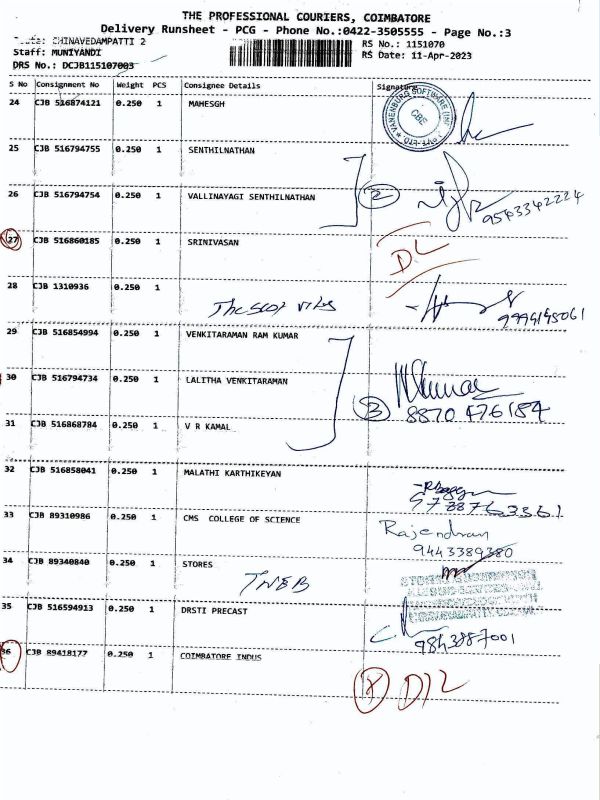 THE PROFESSIONAL COURIERS, COIMBATORE
Delivery Runsheet - PCG - Phone No.:0422-3505555 - Page No.:3
CHINAVEDAMPATTI 2
RS No.: 1151070
Staff: MUNIYANDI
RS Date: 11-Apr-2023
DRS No.: DCJB115107003
S No Consignment No Weight PCS Consignee Details Signature
24 CJB 516874121 0.250 1 MAHESGH
VANENBURG SOFTWARE
CBE
25 CJB 516794755 0.250 1 SENTHILNATHAN
26 CJB 516794754 0.250 1 VALLINAYAGI SENTHILNATHAN
2
9543342224
27 CJB 516860185 0.250 1 SRINIVASAN
DL
28 CJB 1310936 0.250 1
29 CJB 516854994 0.250 1 VENKITARAMAN RAM KUMAR
30 CJB 516794734 0.250 1 LALITHA VENKITARAMAN
3
8870476184
31 CJB 516868784 0.250 1 V R KAMAL
32 CJB 516858041 0.250 1 MALATHI KARTHIKEYAN
33 CJB 89310986 0.250 1 CMS COLLEGE OF SCIENCE
Rajendran
9443389380
34 CJB 89340840 0.250 1 STORES
TNEB
35 CJB 516594913 0.250 1 DRSTI PRECAST
9843887001
36 CJB 89418177 0.250 1 COIMBATORE INDUS